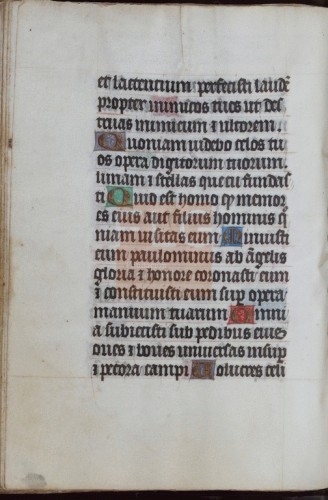 et lactentium perfecisti laudē
propter inimicos tuos ut des
truas inimicum ⁊ ultorem.
Quoniam videbo celos tu
os opera digitorum tuorum.
lunam ⁊ stellas que tu fundas
ti Quid est homo qͥ memor
es eius aut filius hominis q̄
niam visitas eum Minuisti
eum paulominus ab āgelis
gloria ⁊ honore coronasti eum
⁊ constituisti eum suꝑ opera
manuum tuarum Omni
a subiecisti sub pedibus eius
oues ⁊ boues universas insuꝑ
⁊ pecora campi Volucres celi